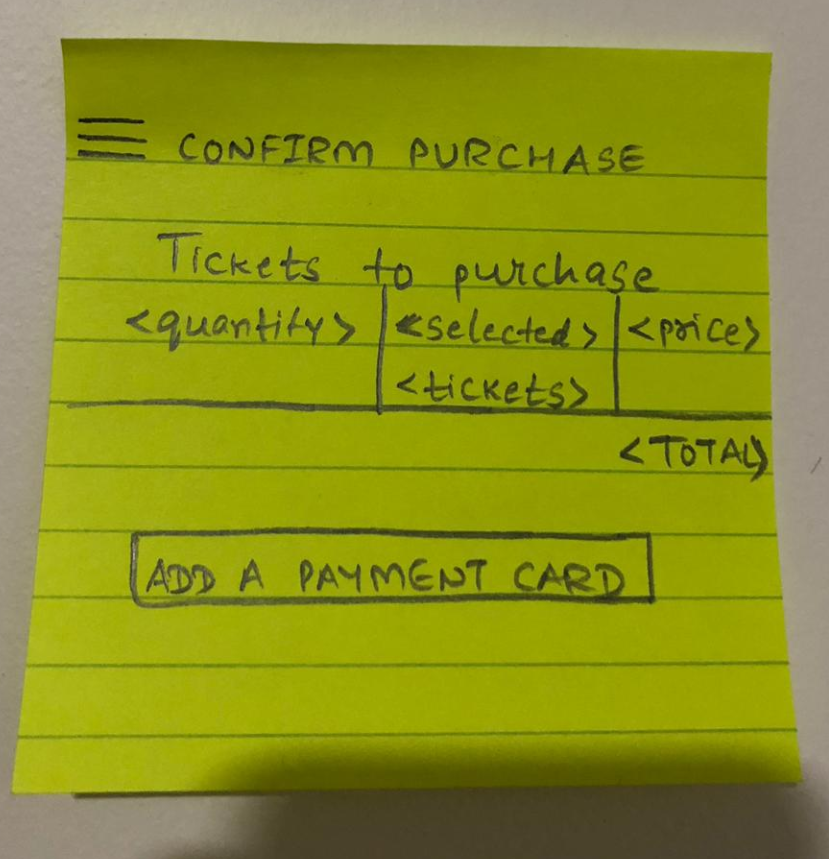 CONFIRM PURCHASE
Tickets to purchase
<quantity> <selected> <price>
<tickets>
<TOTAL>
ADD A PAYMENT CARD